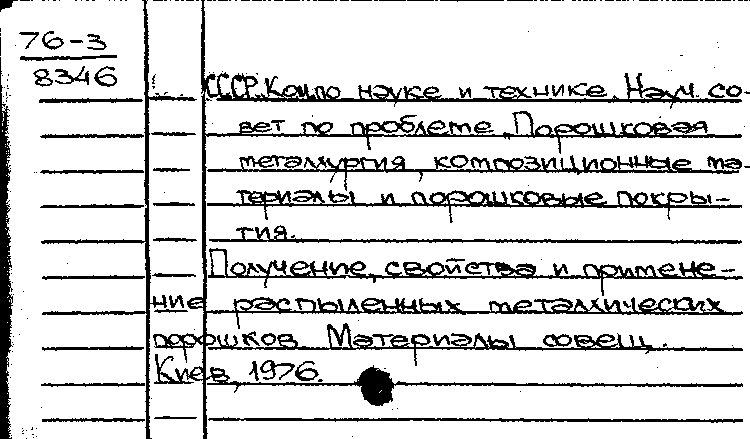 76-3
8346
СССР. Ком. по науке и технике. Науч. со-
вет по проблеме "Порошковая
металлургия, композиционные ма-
териалы и порошковые покры-
тия.
Получение, свойства и примене-
ние распыленных металлических
порошков. Материалы совещ.
Киев, 1976.